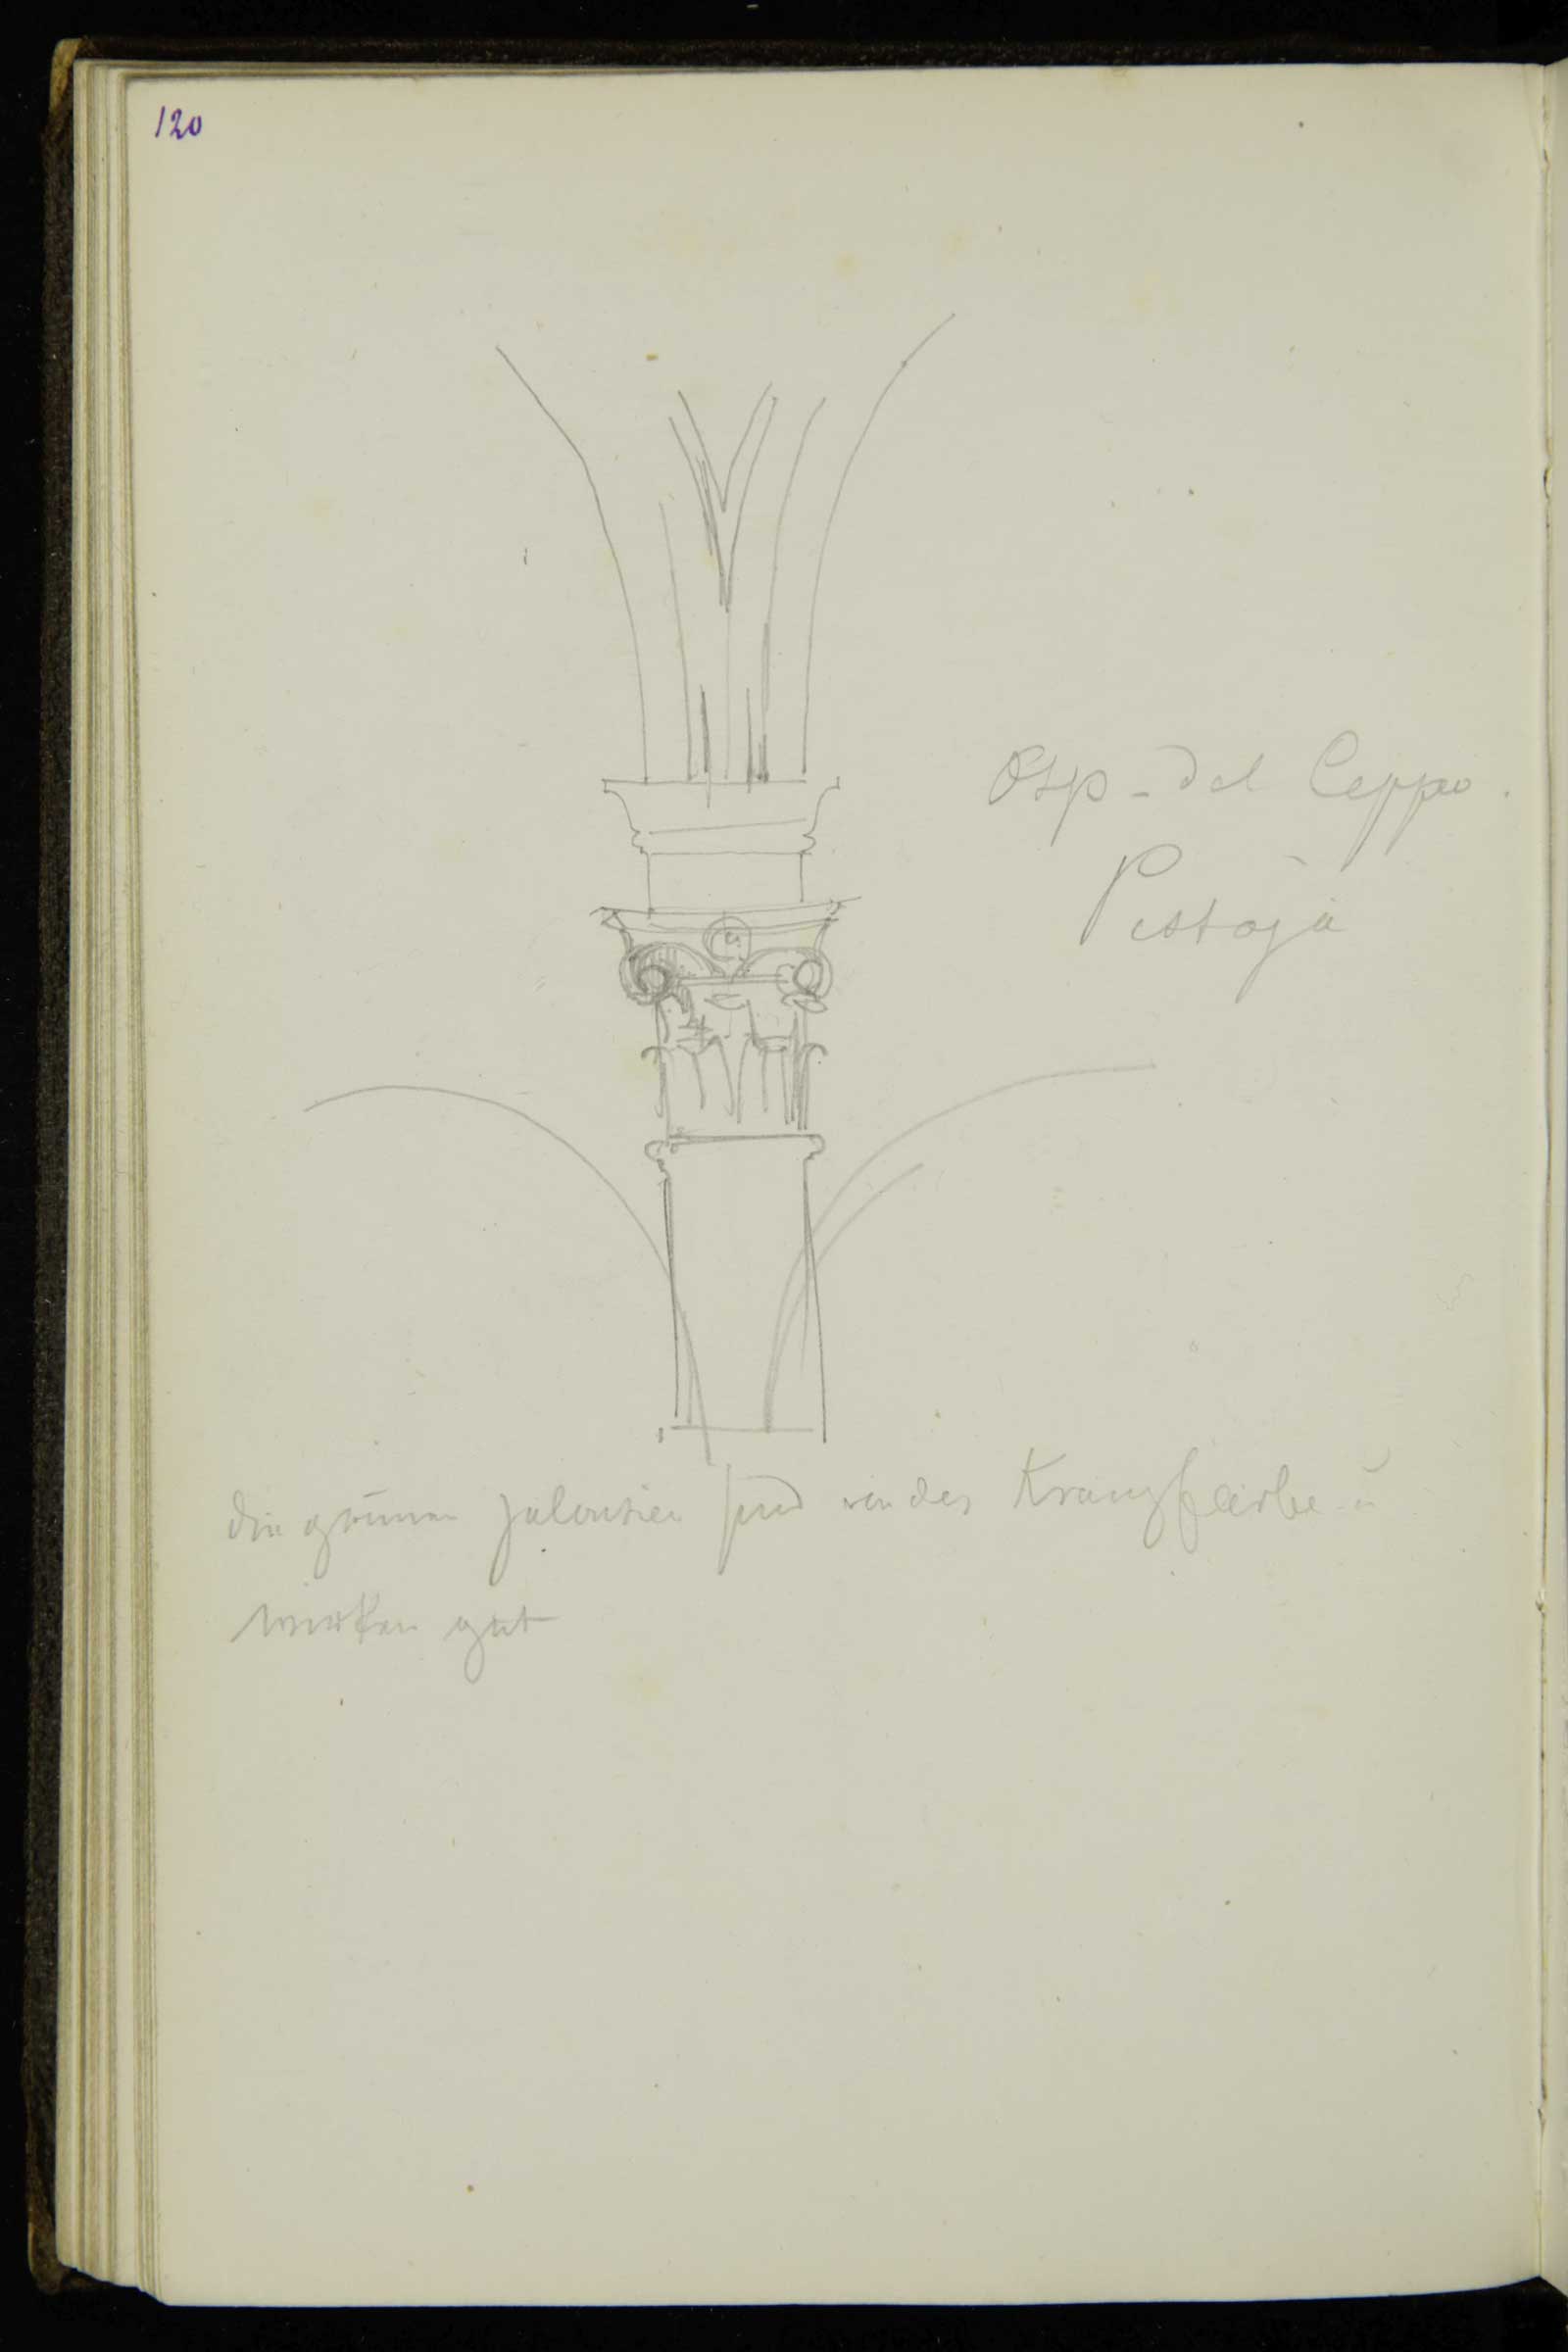 120
Osp - del Ceppo.
Pistoja
die grünen Jalousien sind von der Kranzfarbe u
wirken gut